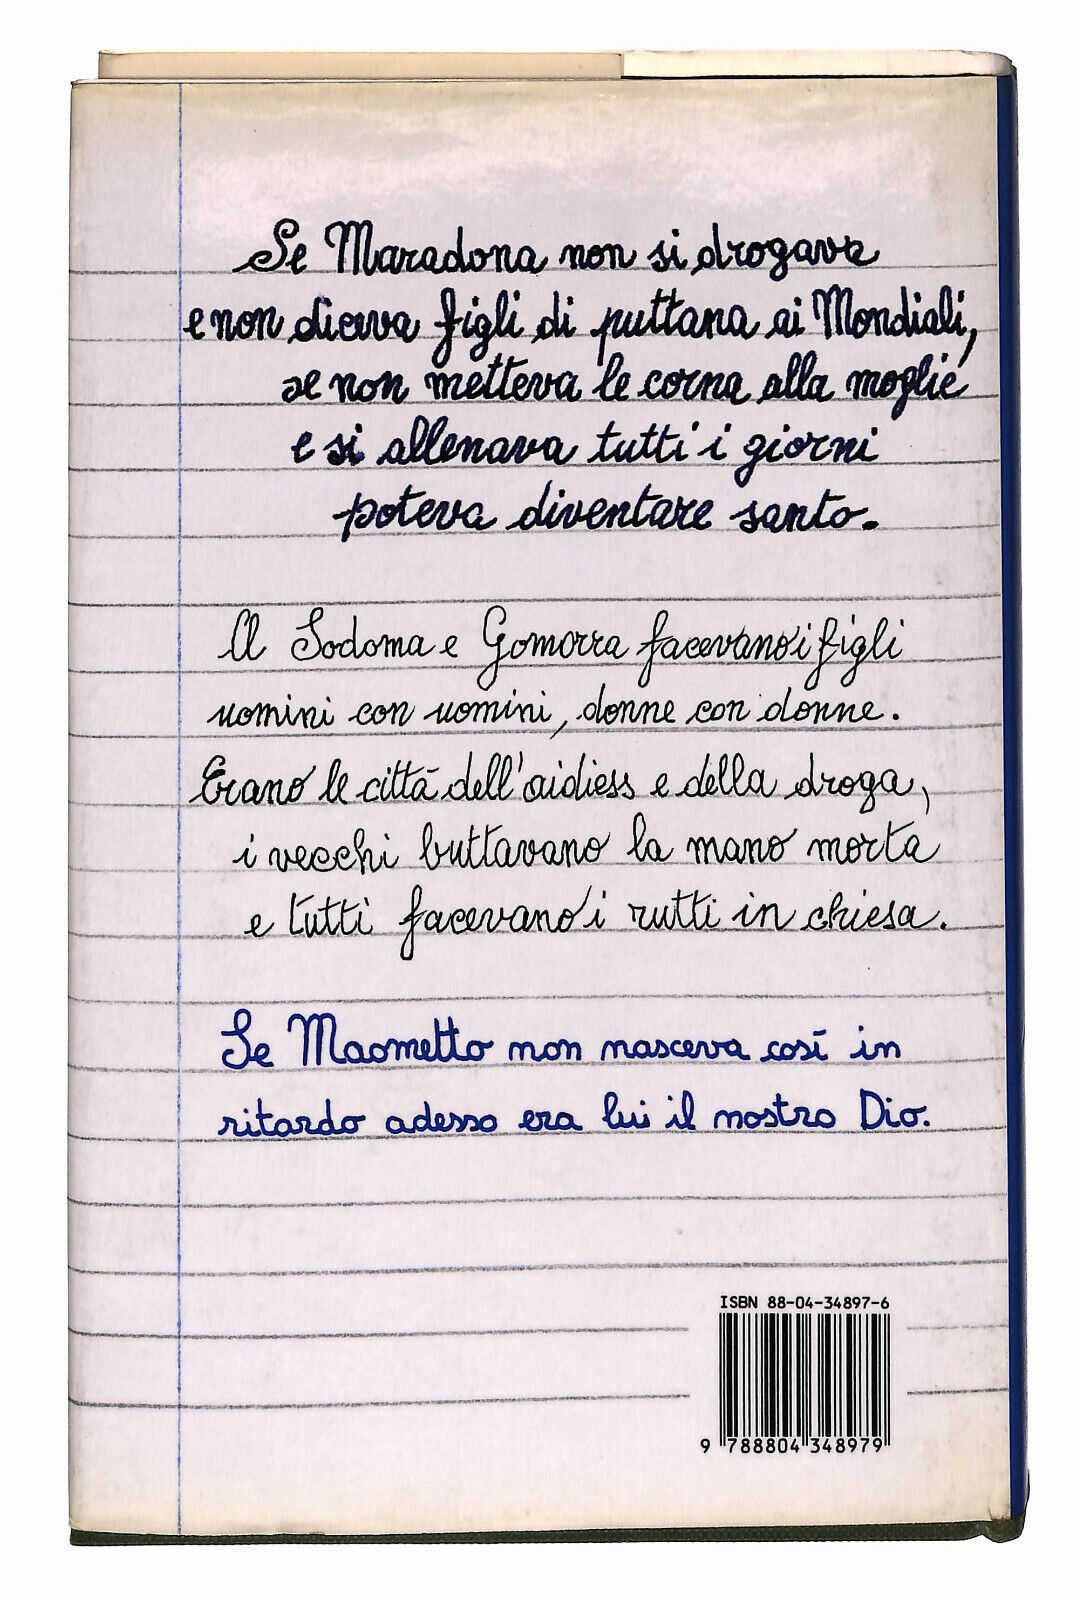 Se Maradona non si drogava
e non diceva figli di puttana ai Mondiali,
se non metteva le corna alla moglie
e si allenava tutti i giorni
poteva diventare santo.
A Sodoma e Gomorra facevano i figli
uomini con uomini, donne con donne.
Erano le città dell'aidiess e della droga,
i vecchi buttavano la mano morta
e tutti facevano i rutti in chiesa.
Se Maometto non nasceva così in
ritardo adesso era lui il nostro Dio.
ISBN 88-04-34897-6
9 788804 348979